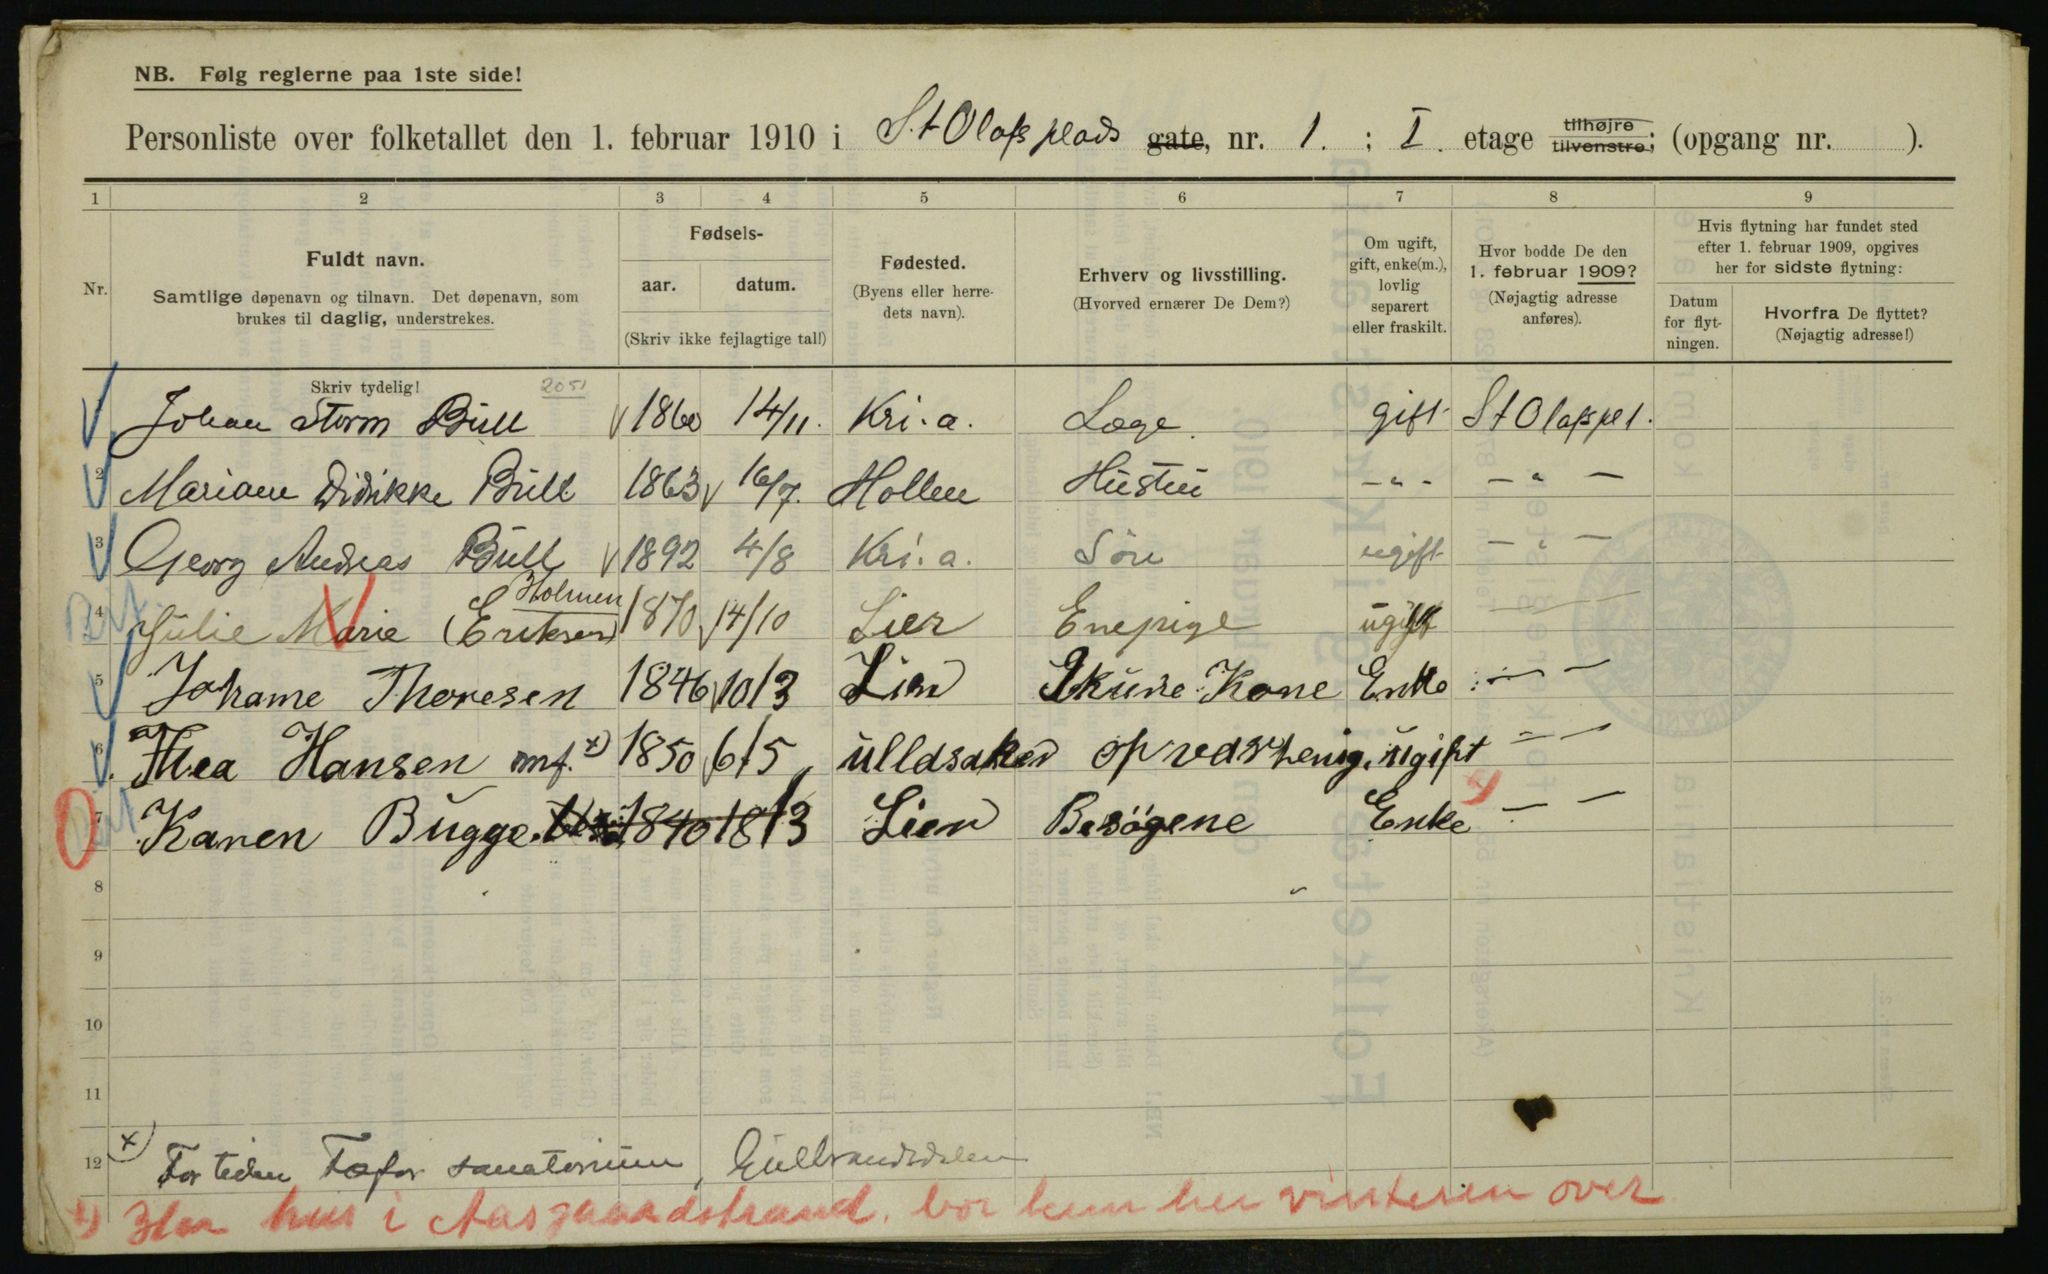 NB. Følg reglerne paa 1ste side!
Personliste over folketallet den 1. februar 1910 i St Olafs plads gate, nr. 1. ; I. etage tilhøjre tilvenstre; (opgang nr. ).
1 2 3 4 5 6 7 8 9
Nr.
Fuldt navn.
Samtlige døpenavn og tilnavn. Det døpenavn, som
brukes til daglig, understrekes.
Fødsels-
aar. datum.
(Skriv ikke fejlagtige tal!)
Fødested.
(Byens eller herre-
dets navn).
Erhverv og livsstilling.
(Hvorved ernærer De Dem?)
Om ugift,
gift, enke(m.),
lovlig
separert
eller fraskilt.
Hvor bodde De den
1. februar 1909?
(Nøjagtig adresse
anføres).
Hvis flytning har fundet sted
efter 1. februar 1909, opgives
her for sidste flytning:
Datum
for flyt-
ningen.
Hvorfra De flyttet?
(Nøjagtig adresse!)
Skriv tydelig! 2051
Johan Storm Bull 1860 14/11. Kri.a. Læge. gift St Olafspl 1.
2 Mariane Didrikke Bull 1863 16/7. Hollen Hustru - " - - " -
3 Georg Andreas Bull 1892 4/8 Kri.a. Sön ugift - " -
Holmen
4 Julie Marie (Eriksen) 1870 14/10 Lier Enepige ugift
5 Johanne Thoresen 1846 10/3 Lier Kone Enke - -
6 Thea Hansen x) 1850 6/5 ulldsaker ugift - -
7 Karen Bugge 1840 18/3 Lier Besögene Enke - -
8
9
10
11
12 x) For tiden Fefor sanatorium, Gulbrandsdalen
Har hus i Aasgaardstrand, bor kun her vinteren over